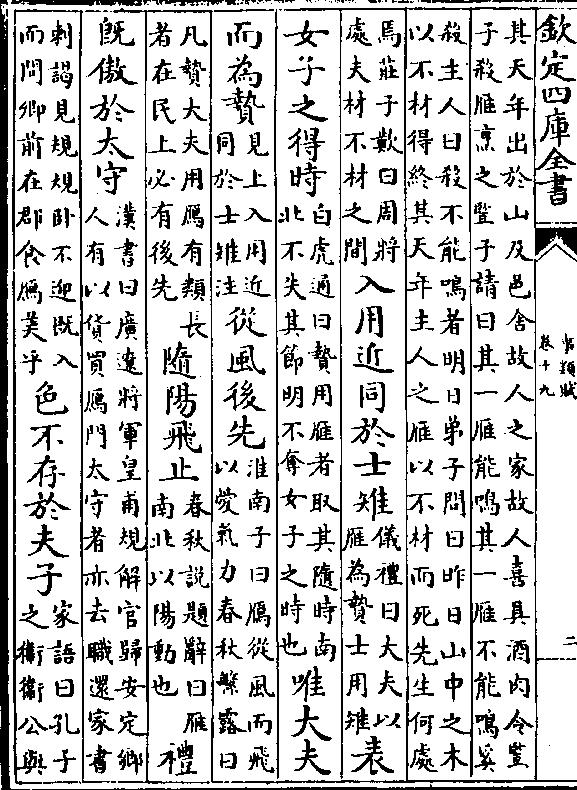 欽定四庫全書
事類賦
卷十九
二
其天年出於山及邑舍故人之家故人喜具酒肉令豎
子殺雁烹之豎子請曰其一雁能鳴其一雁不能鳴奚
殺主人曰殺不能鳴者明日弟子問曰昨日山中之木
以不材得終其天年主人之雁以不材而死先生何處
焉莊子歎曰周將
處夫材不材之間
入用近同於士雉
儀禮曰大夫以
雁為贄士用雉
表
女子之得時
白虎通曰贄用雁者取其隨時南
北不失其節明不奪女子之時也
唯大夫
而為贄
見上入用近
同於士雉注
從風後先
淮南子曰鴈從風而飛
以愛氣力春秋繁露曰
凡贄大夫用鴈有類長
者在民上必有後先
隨陽飛止
春秋說題辭曰雁
南北以陽動也
禮
既傲於太守
漢書曰廣遼將軍皇甫規解官歸安定鄉
人有以貨買鴈門太守者亦去職還家書
刺謁見規規卧不迎既入
而問卿前在郡食鴈美乎
色不存於夫子
家語曰孔子
之衛衛公與